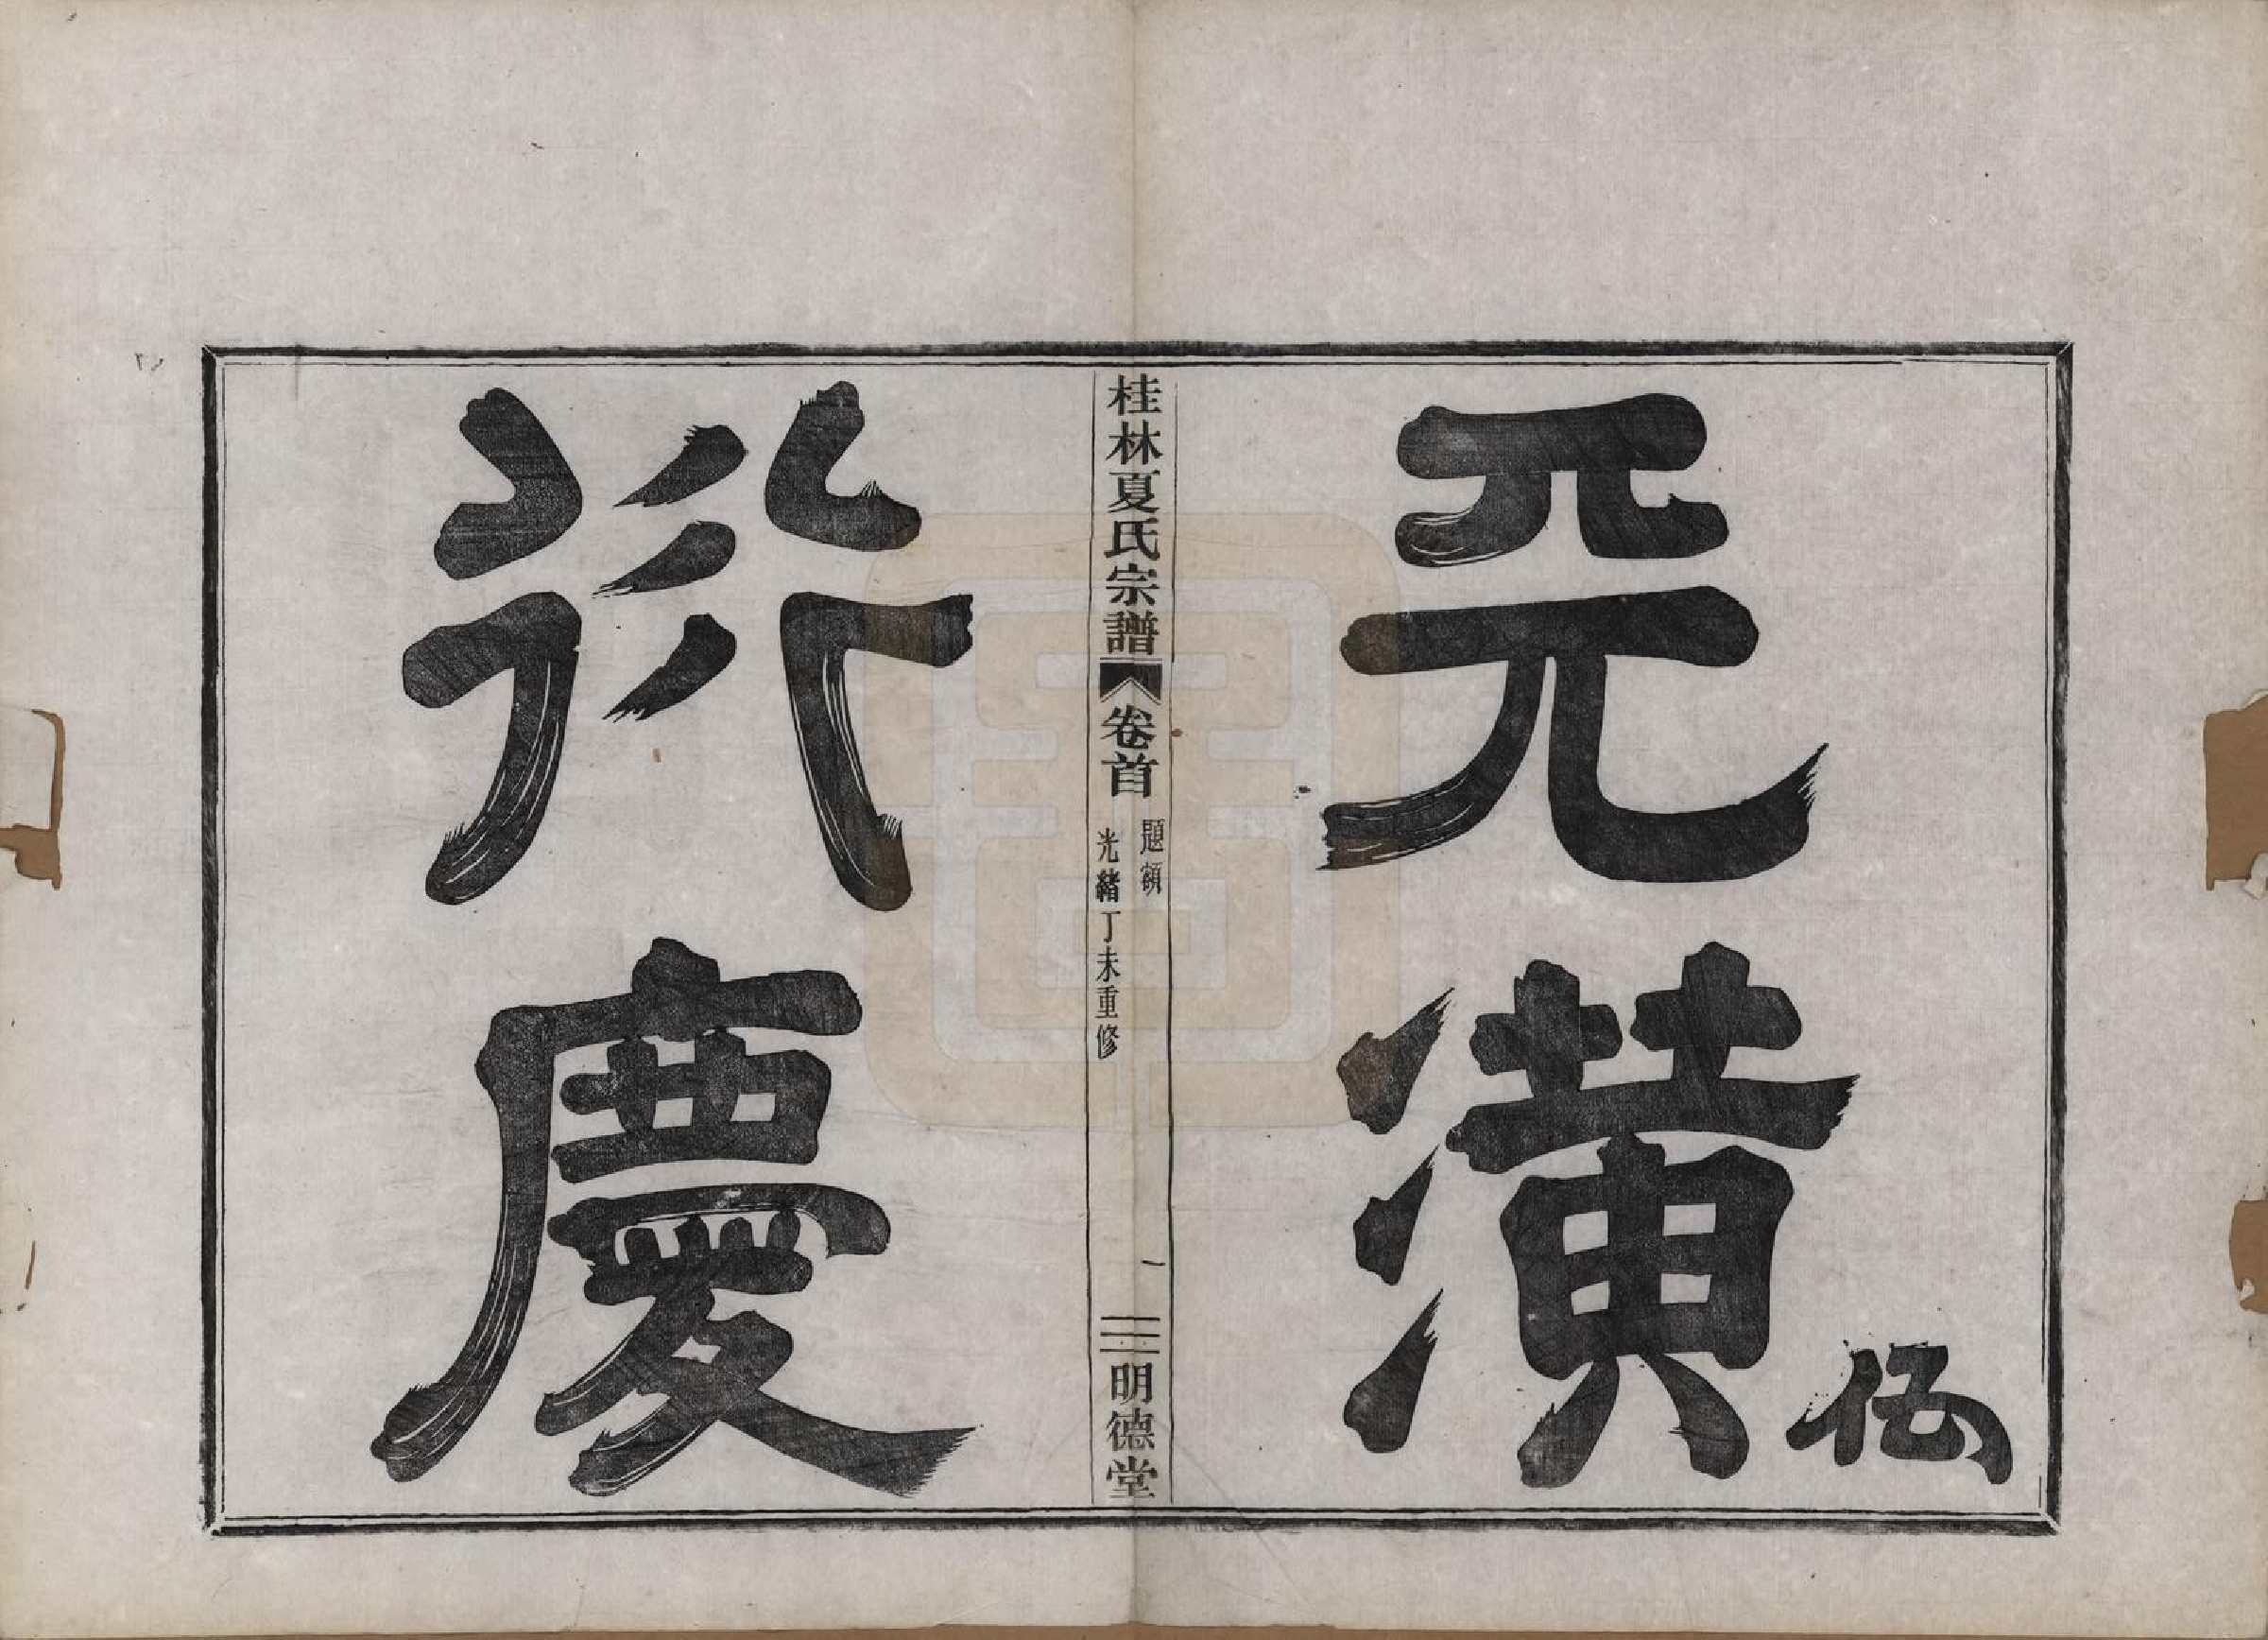 伍
天潢
桂林夏氏宗譜
卷首
題額
光緒丁未重修
一
明德堂
衍慶